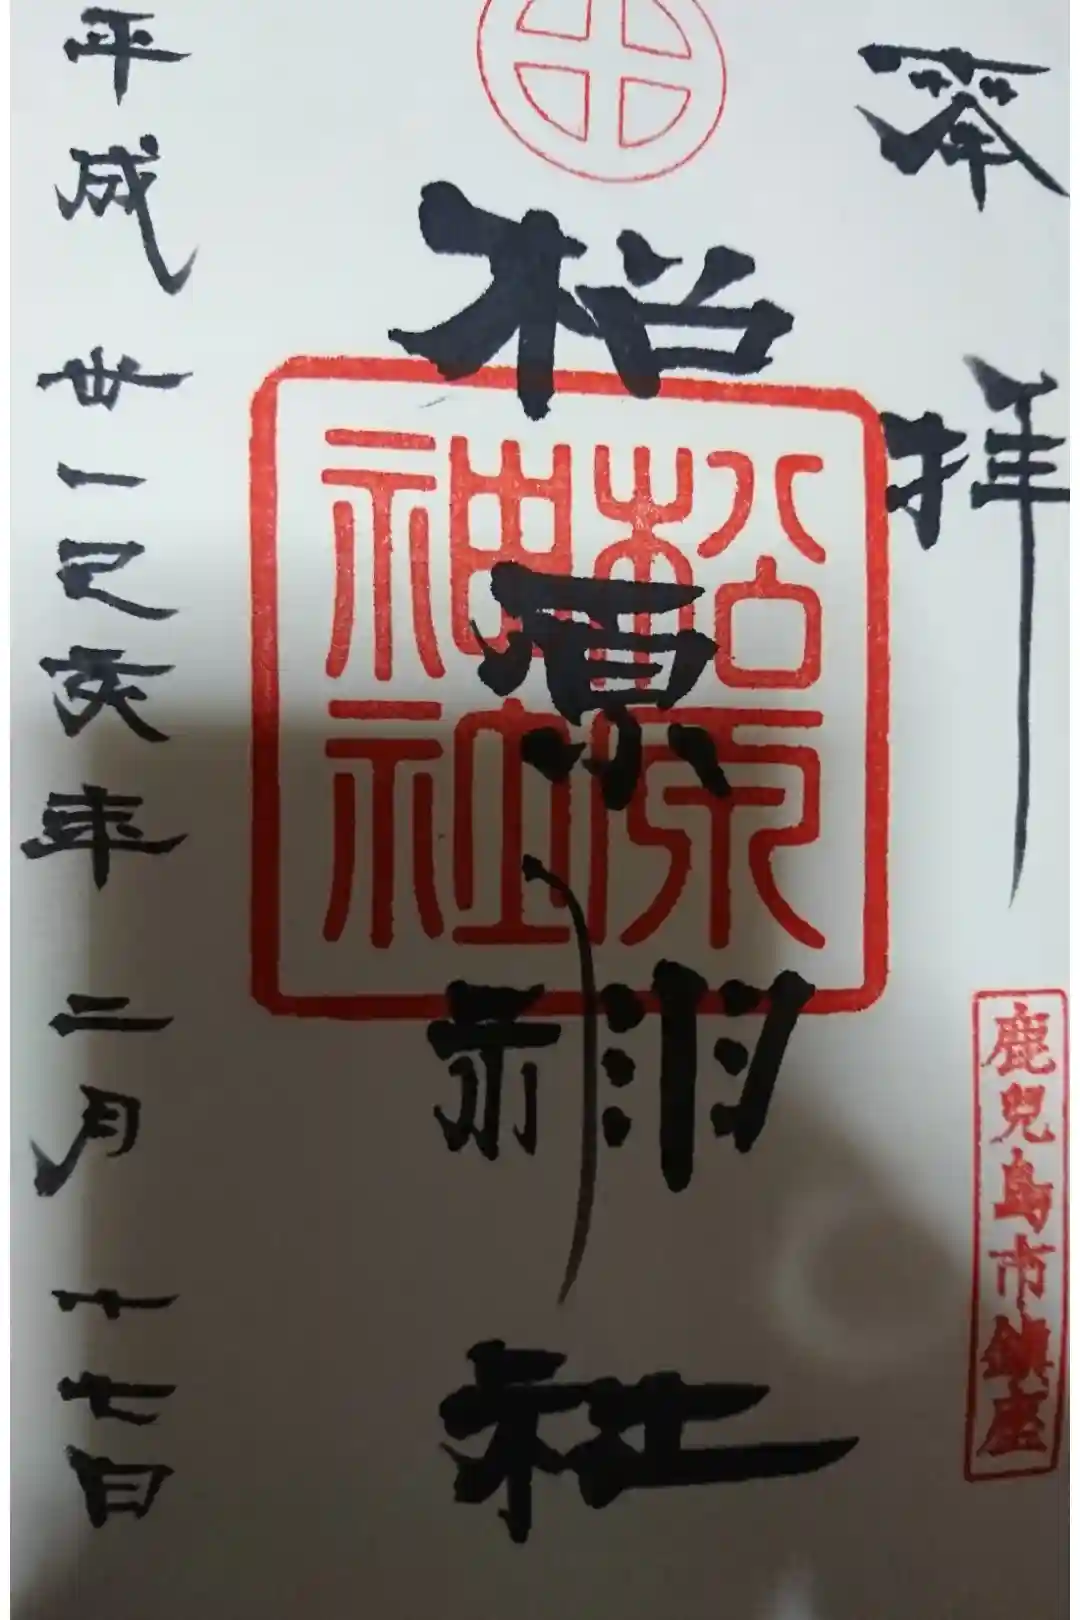 奉拝
鹿兒島市鎮座
松原神社
松原神社
平成卅一己亥年二月十七日